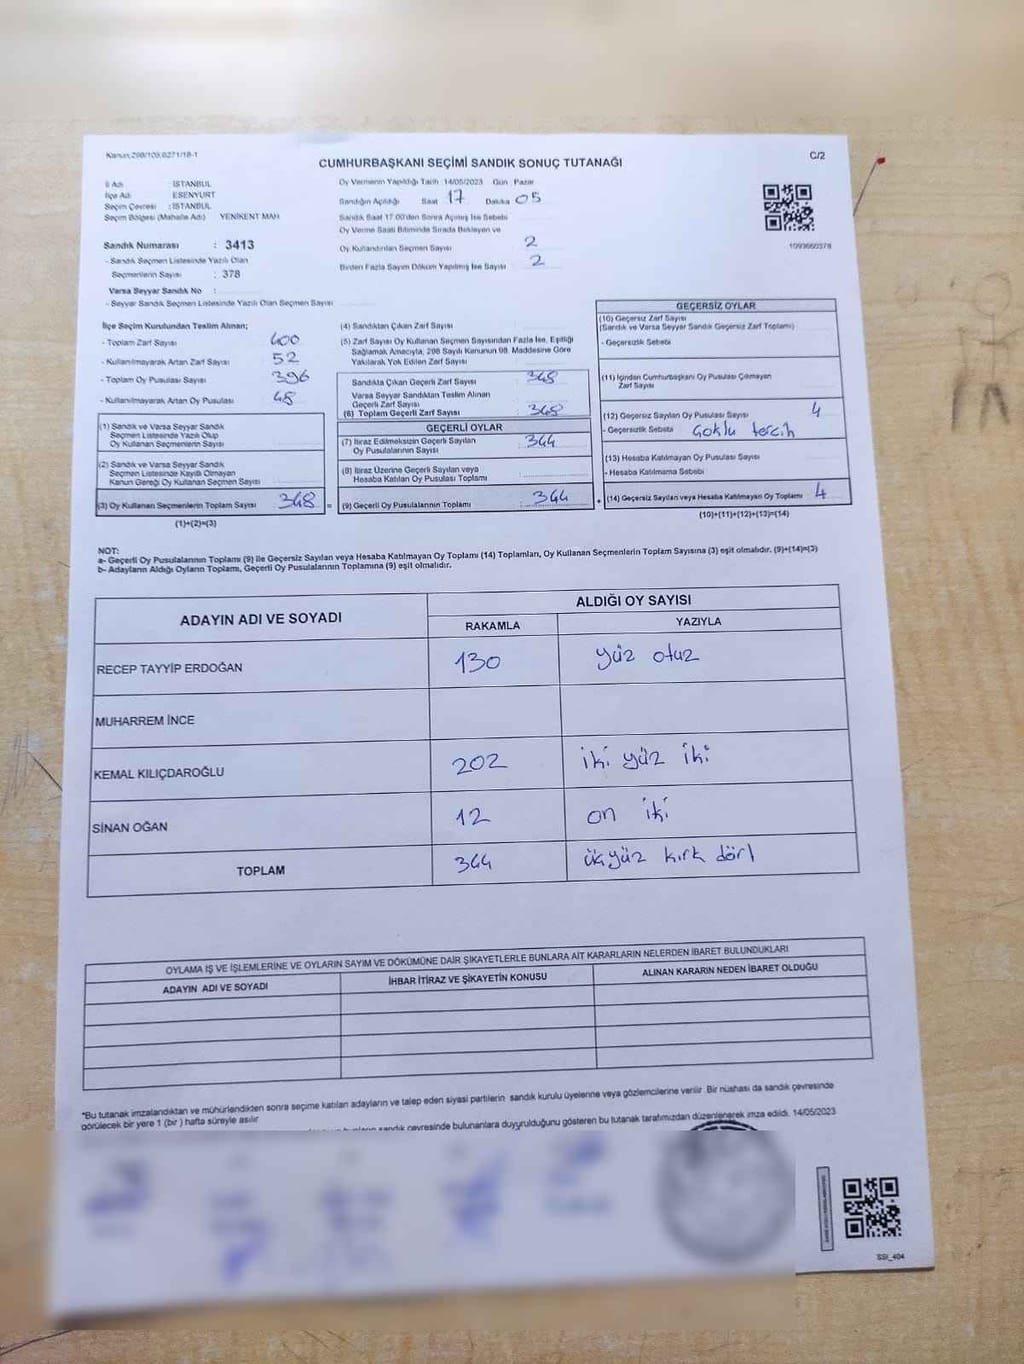 Kanun:298/105,0271/18-1
C/2
CUMHURBAŞKANI SEÇİMİ SANDIK SONUÇ TUTANAĞI
İl Adı : İSTANBUL
İlçe Adı : ESENYURT
Seçim Çevresi : İSTANBUL
Seçim Bölgesi (Mahalle Adı) YENİKENT MAH
Sandık Numarası : 3413
- Sandık Seçmen Listesinde Yazılı Olan
Seçmenlerin Sayısı : 378
Varsa Seyyar Sandık No :
- Seyyar Sandık Seçmen Listesinde Yazılı Olan Seçmen Sayısı
Oy Vermenin Yapıldığı Tarih 14/05/2023 Gün Pazar
Sandığın Açıldığı Saat 17 Dakika 05
Sandık Saat 17:00'den Sonra Açılmış İse Sebebi
Oy Verme Saati Bitiminde Sırada Bekleyen ve
Oy Kullandırılan Seçmen Sayısı 2
Birden Fazla Sayım Döküm Yapılmış İse Sayısı 2
1093660378
İlçe Seçim Kurulundan Teslim Alınan;
- Toplam Zarf Sayısı 400
- Kullanılmayarak Artan Zarf Sayısı 52
- Toplam Oy Pusulası Sayısı 396
- Kullanılmayarak Artan Oy Pusulası 48
(1) Sandık ve Varsa Seyyar Sandık
Seçmen Listesinde Yazılı Olup
Oy Kullanan Seçmenlerin Sayısı
(2) Sandık ve Varsa Seyyar Sandık
Seçmen Listesinde Kayıtlı Olmayan
Kanun Gereği Oy Kullanan Seçmen Sayısı
(3) Oy Kullanan Seçmenlerin Toplam Sayısı 348
(1)+(2)=(3)
(4) Sandıktan Çıkan Zarf Sayısı
(5) Zarf Sayısı Oy Kullanan Seçmen Sayısından Fazla İse, Eşitliği
Sağlamak Amacıyla, 298 Sayılı Kanunun 98. Maddesine Göre
Yakılarak Yok Edilen Zarf Sayısı
Sandıkta Çıkan Geçerli Zarf Sayısı 348
Varsa Seyyar Sandıktan Teslim Alınan
Geçerli Zarf Sayısı
(6) Toplam Geçerli Zarf Sayısı 348
GEÇERLİ OYLAR
(7) İtiraz Edilmeksizin Geçerli Sayılan
Oy Pusulalarının Sayısı 344
(8) İtiraz Üzerine Geçerli Sayılan veya
Hesaba Katılan Oy Pusulası Toplamı
= (9) Geçerli Oy Pusulalarının Toplamı 344
GEÇERSİZ OYLAR
(10) Geçersiz Zarf Sayısı
(Sandık ve Varsa Seyyar Sandık Geçersiz Zarf Toplamı)
- Geçersizlik Sebebi
(11) İçinden Cumhurbaşkanı Oy Pusulası Çıkmayan
Zarf Sayısı
(12) Geçersiz Sayılan Oy Pusulası Sayısı 4
- Geçersizlik Sebebi Çoklu tercih
(13) Hesaba Katılmayan Oy Pusulası Sayısı
- Hesaba Katılmama Sebebi
+ (14) Geçersiz Sayılan veya Hesaba Katılmayan Oy Toplamı 4
(10)+(11)+(12)+(13)=(14)
NOT:
a- Geçerli Oy Pusulalarının Toplamı (9) ile Geçersiz Sayılan veya Hesaba Katılmayan Oy Toplamı (14) Toplamları, Oy Kullanan Seçmenlerin Toplam Sayısına (3) eşit olmalıdır. (9)+(14)=(3)
b- Adayların Aldığı Oyların Toplamı, Geçerli Oy Pusulalarının Toplamına (9) eşit olmalıdır.
ADAYIN ADI VE SOYADI
ALDIĞI OY SAYISI
RAKAMLA YAZIYLA
RECEP TAYYİP ERDOĞAN 130 yüz otuz
MUHARREM İNCE
KEMAL KILIÇDAROĞLU 202 iki yüz iki
SİNAN OĞAN 12 on iki
TOPLAM 344 üçyüz kırk dört
OYLAMA İŞ VE İŞLEMLERİNE VE OYLARIN SAYIM VE DÖKÜMÜNE DAİR ŞİKAYETLERLE BUNLARA AİT KARARLARIN NELERDEN İBARET BULUNDUKLARI
ADAYIN ADI VE SOYADI İHBAR İTİRAZ VE ŞİKAYETİN KONUSU ALINAN KARARIN NEDEN İBARET OLDUĞU
*Bu tutanak imzalandıktan ve mühürlendikten sonra seçime katılan adayların ve talep eden siyasi partilerin sandık kurulu üyelerine veya gözlemcilerine verilir. Bir nüshası da sandık çevresinde
görülecek bir yere 1 (bir ) hafta süreyle asılır
sandık çevresinde bulunanlara duyurulduğunu gösteren bu tutanak tarafımızdan düzenlenerek imza edildi. 14/05/2023
SSI_404